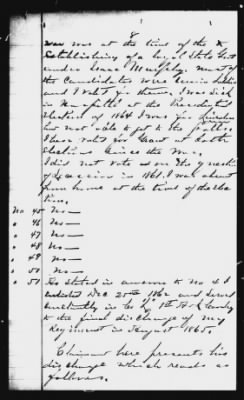 8
was was at the time of the
Establishing of a Loyal State Govt
under Isaac Murphy. most of
the Candidates were Union
and I Voted for them. I was Sick
in at the Presidential
Election of 1864 I was for Lincoln
but not able to get to the polls.
I have voted for Grant at both
Elections Since the War.
I did not vote upon the question
of Secession in 1861. I was absent
from home at the time of the
tion.
No 45 No—
" 46 No—
" 47 No—
" 48 No—
" 49 No—
" 50 No—
" 51 As Stated in answer to No 42
enlisted Dec 25th 1862 and Served
in Co 1st Ark Cavalry
to the final discharge of my
Regiment in August 1865.
Claimant here presents his
discharge which reads as
follows.